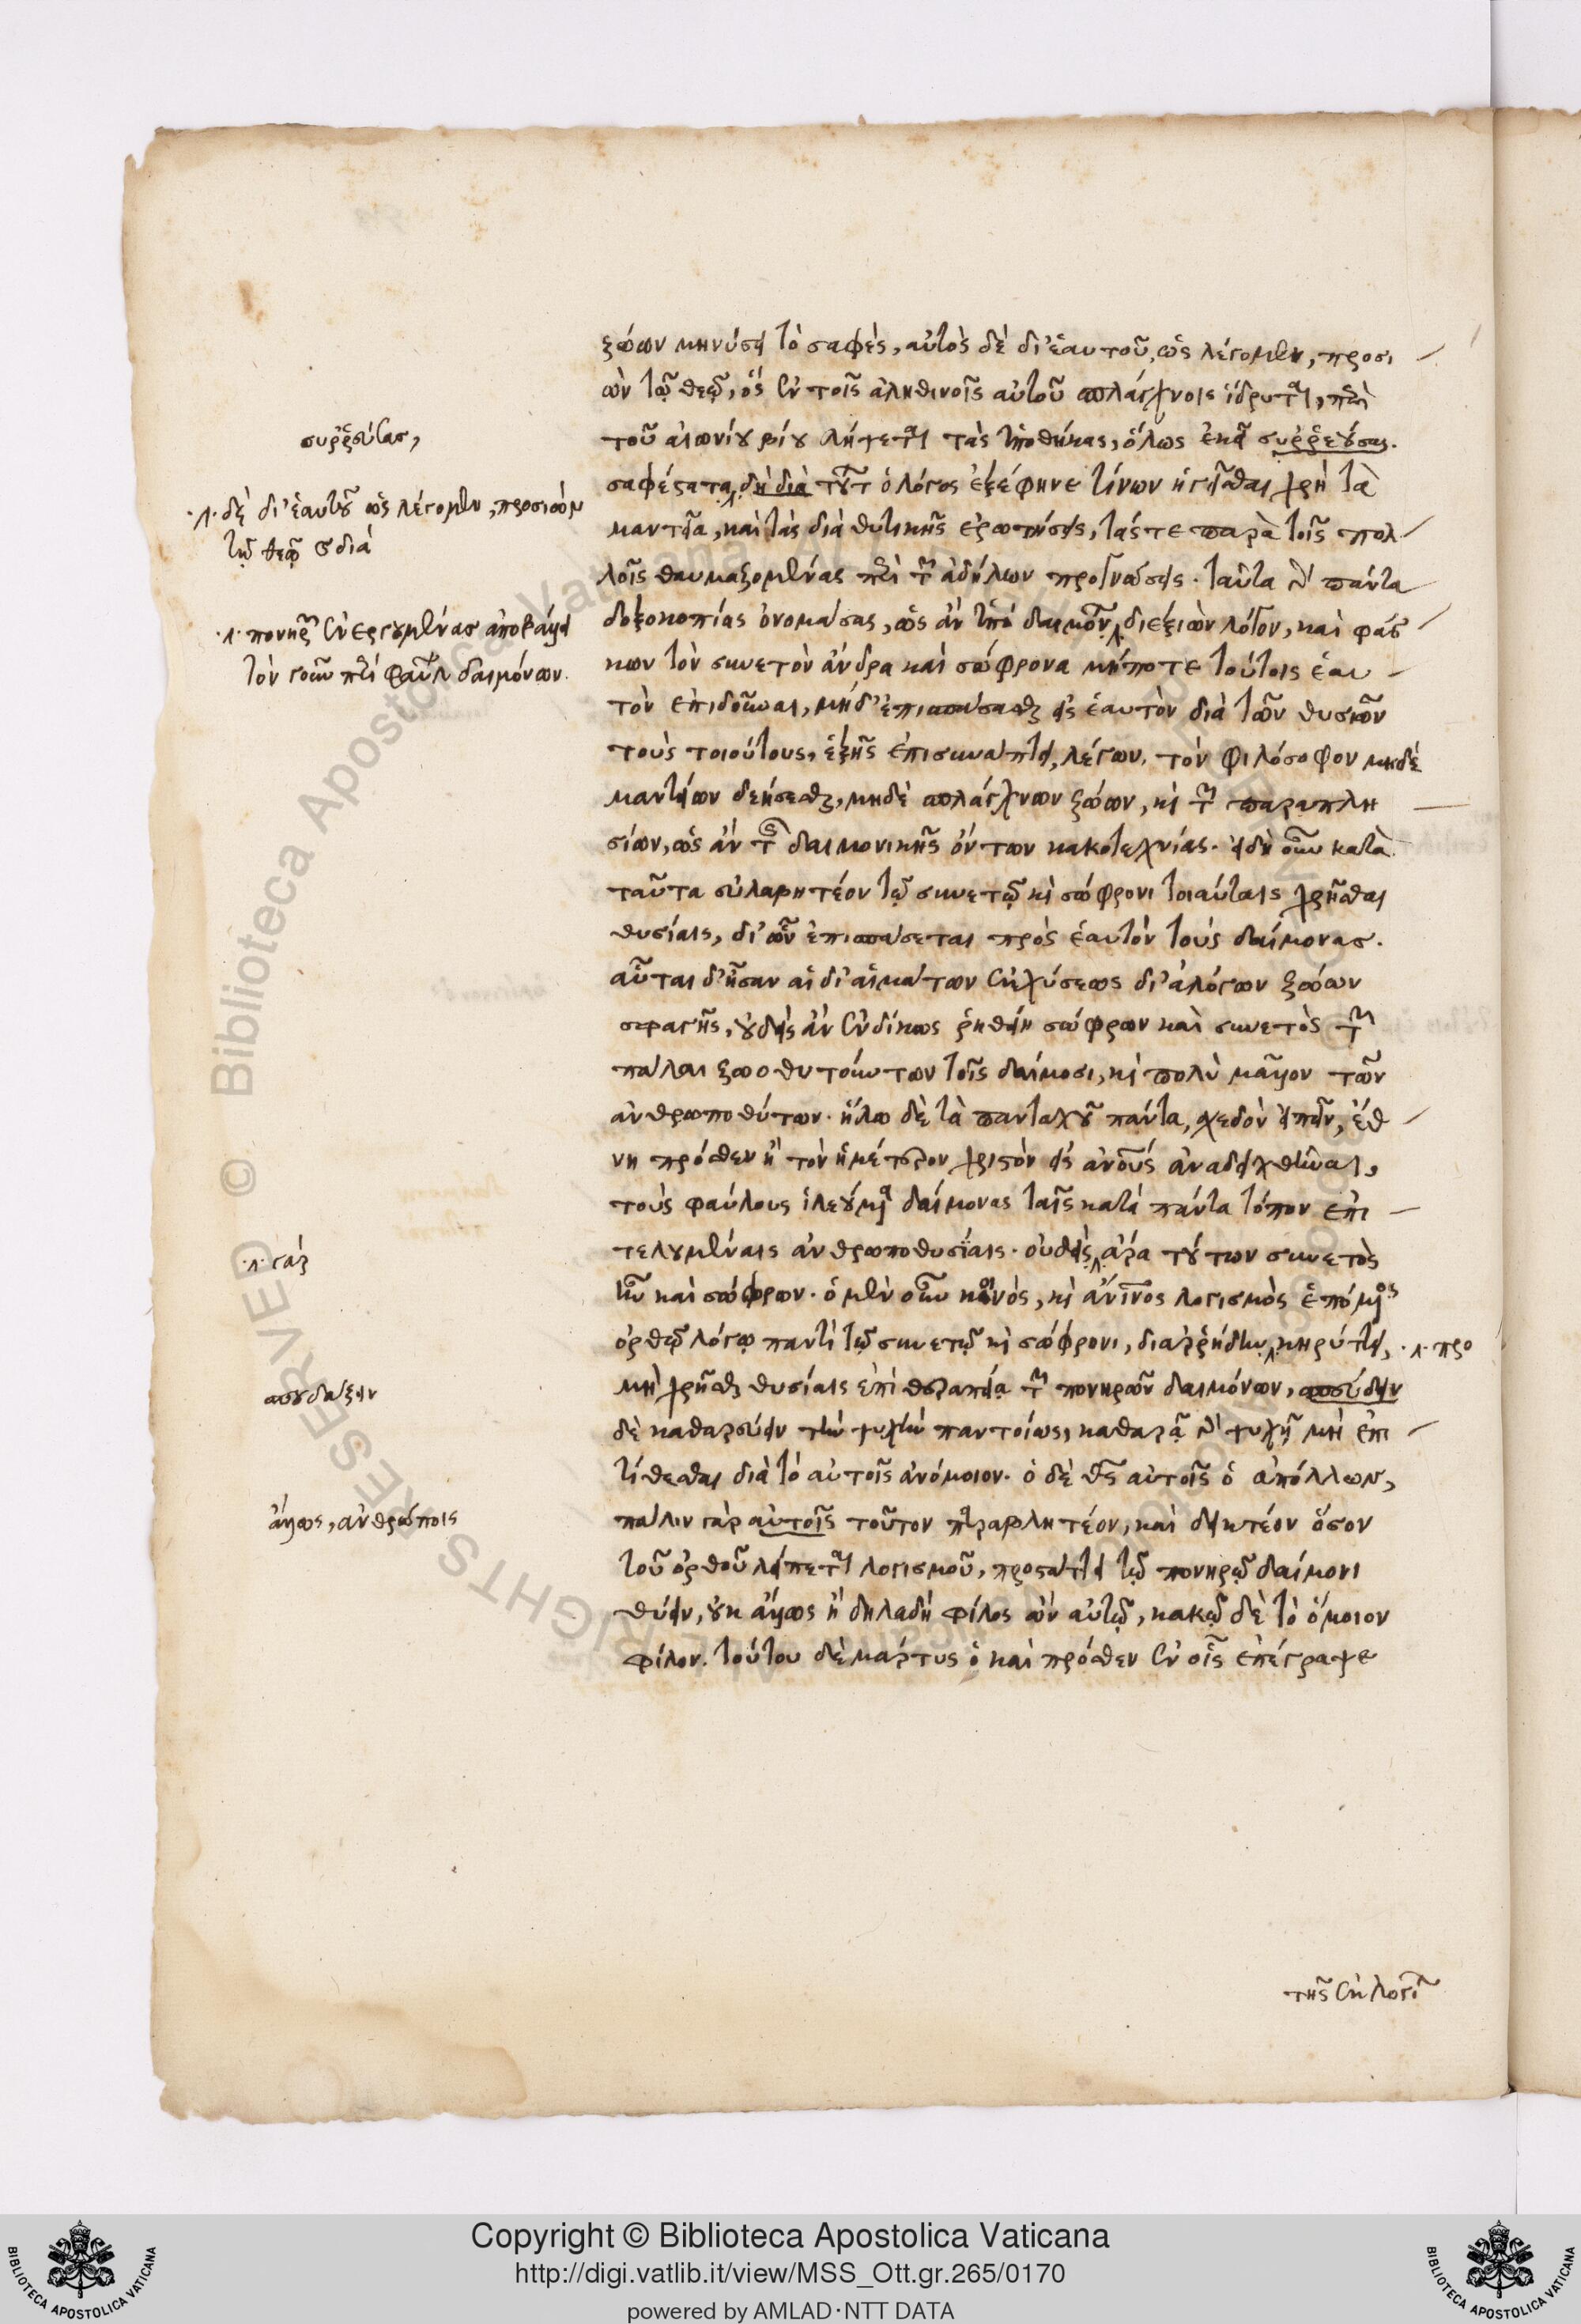 ζώων μηνύσει τὸ σαφές, αὐτὸς δὲ δι' ἑαυτοῦ, ὡς λέγομεν, προσι
ὼν τῷ θεῷ, ὃς ἐν τοῖς ἀληθινοῖς αὐτοῦ σπλάγχνοις ἵδρυται, περὶ
τοῦ αἰωνίου βίου λήψεται τὰς ὑποθήκας, ὅλως ἐκεῖ συῤῥεύσας.
σαφέστατα δὴ διὰ τούτων ὁ λόγος ἐξέφηνε τίνων ἡγεῖσθαι χρὴ τὰ
μαντεῖα, καὶ τὰς διὰ θυτικῆς ἐρωτήσεις, τάς τε παρὰ τοῖς πολ
λοῖς θαυμαζομένας περὶ τῶν ἀδήλων προγνώσεις. ταῦτα γὰρ πάντα
δοξοκοπίας ὀνομάσας, ὡς ἂν ὑπὸ δαιμόνων, διεξιὼν λόγον, καὶ φάσ
κων τὸν συνετὸν ἄνδρα καὶ σώφρονα μήποτε τούτοις ἑαυ
τὸν ἐπιδοῦναι, μηδ' ἐπισπάσασθαι εἰς ἑαυτὸν διὰ τῶν θυσιῶν
τοὺς τοιούτους, ἑξῆς ἐπισυνάπτει, λέγων, τὸν φιλόσοφον μηδὲ
μαντείων δεήσεσθαι, μηδὲ σπλάγχνων ζώων, καὶ τῶν παραπλη
σίων, ὡς ἂν τῆς δαιμονικῆς ὄντων κακοτεχνίας. εἰ δὴ οὖν κατὰ
ταῦτα εὐλαβητέον τῷ συνετῷ καὶ σώφρονι τοιαύταις χρῆσθαι
θυσίαις, δι' ὧν ἐπισπάσεται πρὸς ἑαυτὸν τοὺς δαίμονας.
αὗται δ' ἦσαν αἱ δι' αἱμάτων ἐκχύσεως δι' ἀλόγων ζώων
σφαγῆς, οὐδεὶς ἂν ἐνδίκως ῥηθείη σώφρων καὶ συνετὸς τῶν
πάλαι ζωοθυτούντων τοῖς δαίμοσι, καὶ πολὺ μᾶλλον τῶν
ἀνθρωποθύτων. ἥλω δὲ τὰ πανταχοῦ πάντα, σχεδὸν εἰπεῖν, ἔθ
νη πρόσθεν ἢ τὸν ἡμέτερον χριστὸν εἰς ἀνθρώπους ἀναδειχθῆναι,
τοὺς φαύλους ἱλεούμενα δαίμονας ταῖς κατὰ πάντα τόπον ἐπι
τελουμέναις ἀνθρωποθυσίαις. οὐδεὶς ἄρα τούτων συνετὸς
ἦν καὶ σώφρων. ὁ μὲν οὖν κοινὸς, καὶ ἀνθρώπινος λογισμὸς ἑπόμενος
ὀρθῷ λόγῳ παντὶ τῷ συνετῷ καὶ σώφρονι, διαῤῥήδην κηρύττει,
μὴ χρῆσθαι θυσίαις ἐπὶ θεραπείᾳ τῶν πονηρῶν δαιμόνων, σπεύδειν
δὲ καθαρεύειν τὴν ψυχὴν παντοίως, καθαρᾷ γὰρ ψυχῇ μὴ ἐπι
τίθεσθαι διὰ τὸ αὐτοῖς ἀνόμοιον. ὁ δὲ θεὸς αὐτοῖς ὁ ἀπόλλων,
πάλιν γὰρ αὐτοῖς τοῦτον παραβλητέον, καὶ δεικτέον ὅσον
τοῦ ὀρθοῦ λείπεται λογισμοῦ, προστάττει τῷ πονηρῷ δαίμονι
θύειν, οὐκ ἄλλως ἢ δηλαδὴ φίλος ὢν αὐτῷ, κακῷ δὲ τὸ ὅμοιον
φίλον. τούτου δὲ μάρτυς ὁ καὶ πρόσθεν ἐν οἷς ἐπέγραψε
τῆς ἐκ λογί
συῤῥεύσας,
.λ. δὲ δι' ἑαυτοῦ ὡς λέγομεν, προσιὼν
τῷ θεῷ
.λ. πονηρῶν ἐνεργουμένας ἀποβάλλει
τὸν γοῦν περὶ φαύλων δαιμόνων.
.λ. γὰρ
.λ. προ
σπουδάζειν
ἄλλως, ἀνθρώποις
Copyright © Biblioteca Apostolica Vaticana
http://digi.vatlib.it/view/MSS_Ott.gr.265/0170
powered by AMLAD·NTT DATA
BIBLIOTECA APOSTOLICA VATICANA
BIBLIOTECA APOSTOLICA VATICANA